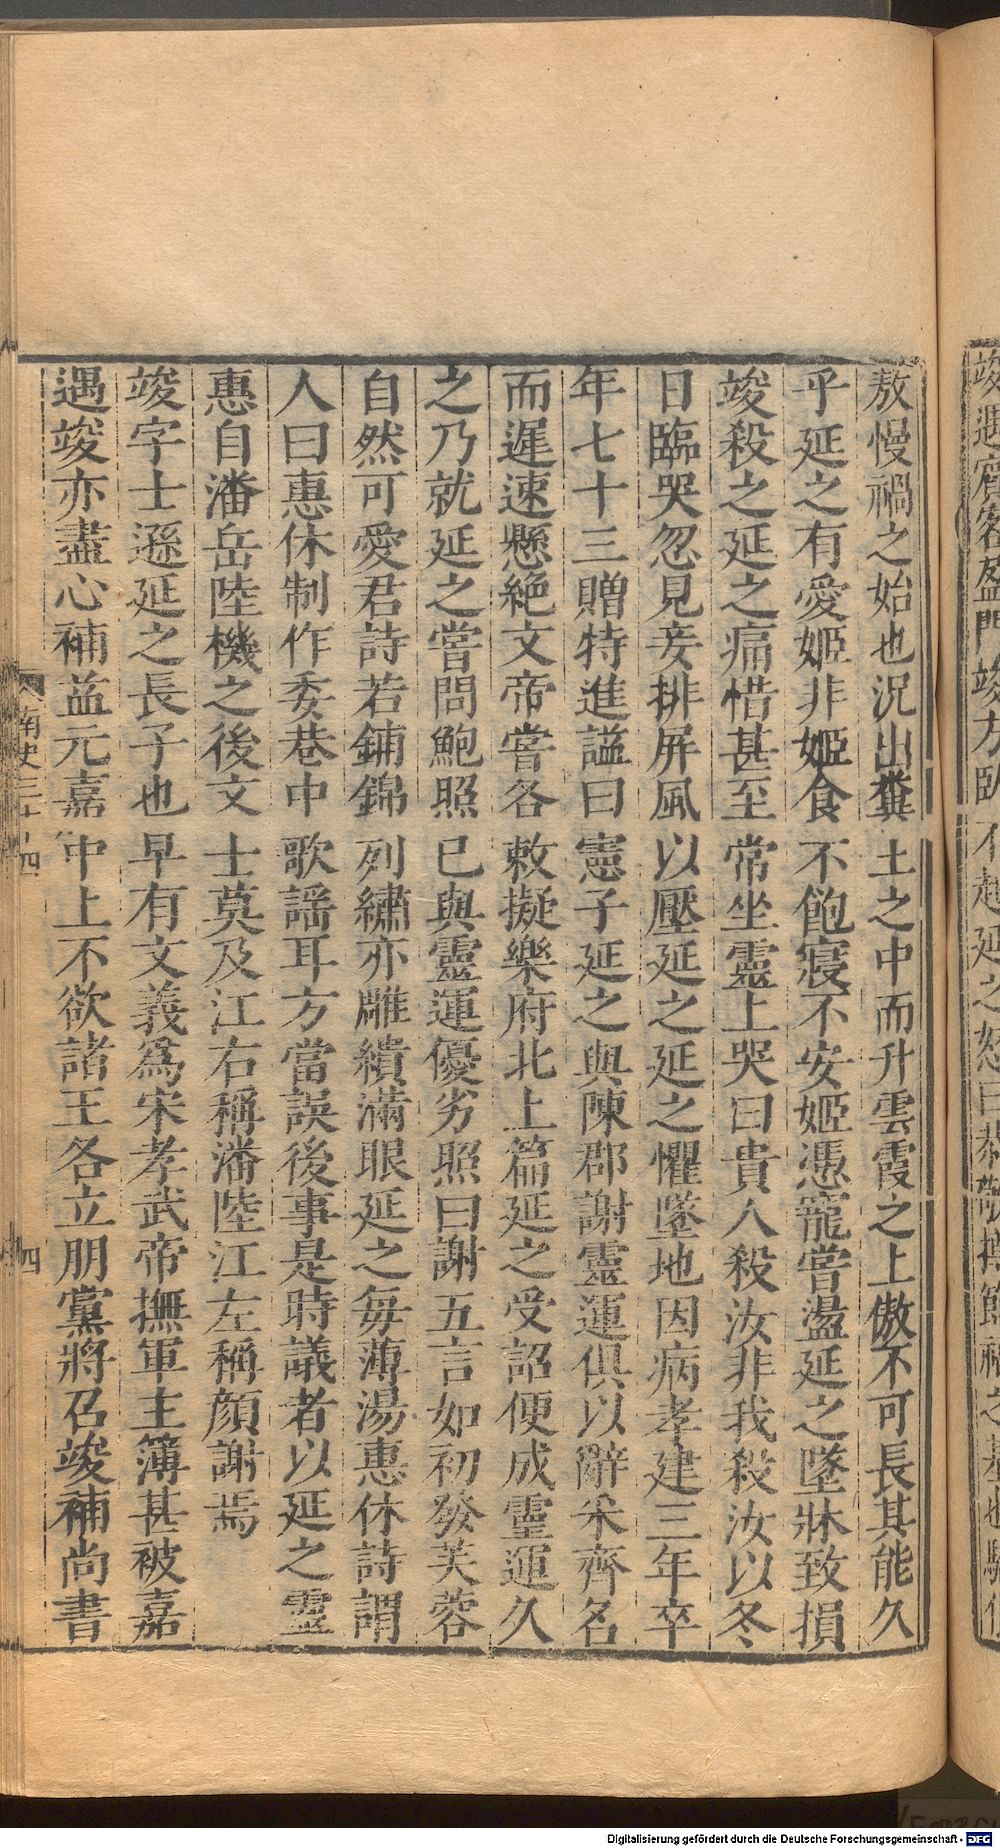 敖慢禍之始也況出糞土之中而升雲霞之上傲不可長其能久
乎延之有愛姬非姬食不飽寢不安姬憑寵嘗盪延之墜牀致損
竣殺之延之痛惜甚至常坐靈上哭曰貴人殺汝非我殺汝以冬
日臨哭忽見妾排屏風以壓延之延之懼墜地因病孝建三年卒
年七十三贈特進謚曰憲子延之與陳郡謝靈運俱以辭采齊名
而遲速懸絕文帝嘗各敕擬樂府北上篇延之受詔便成靈運久
之乃就延之嘗問鮑照已與靈運優劣照曰謝五言如初發芙蓉
自然可愛君詩若鋪錦列繡亦雕繢滿眼延之每薄湯惠休詩謂
人曰惠休制作委巷中歌謠耳方當誤後事是時議者以延之靈
惠自潘岳陸機之後文士莫及江右稱潘陸江左稱顏謝焉
竣字士遜延之長子也早有文義為宋孝武帝撫軍主簿甚被嘉
遇竣亦盡心補益元嘉中上不欲諸王各立朋黨將召竣補尚書
南史三十四
四
Digitalisierung gefördert durch die Deutsche Forschungsgemeinschaft - DFG